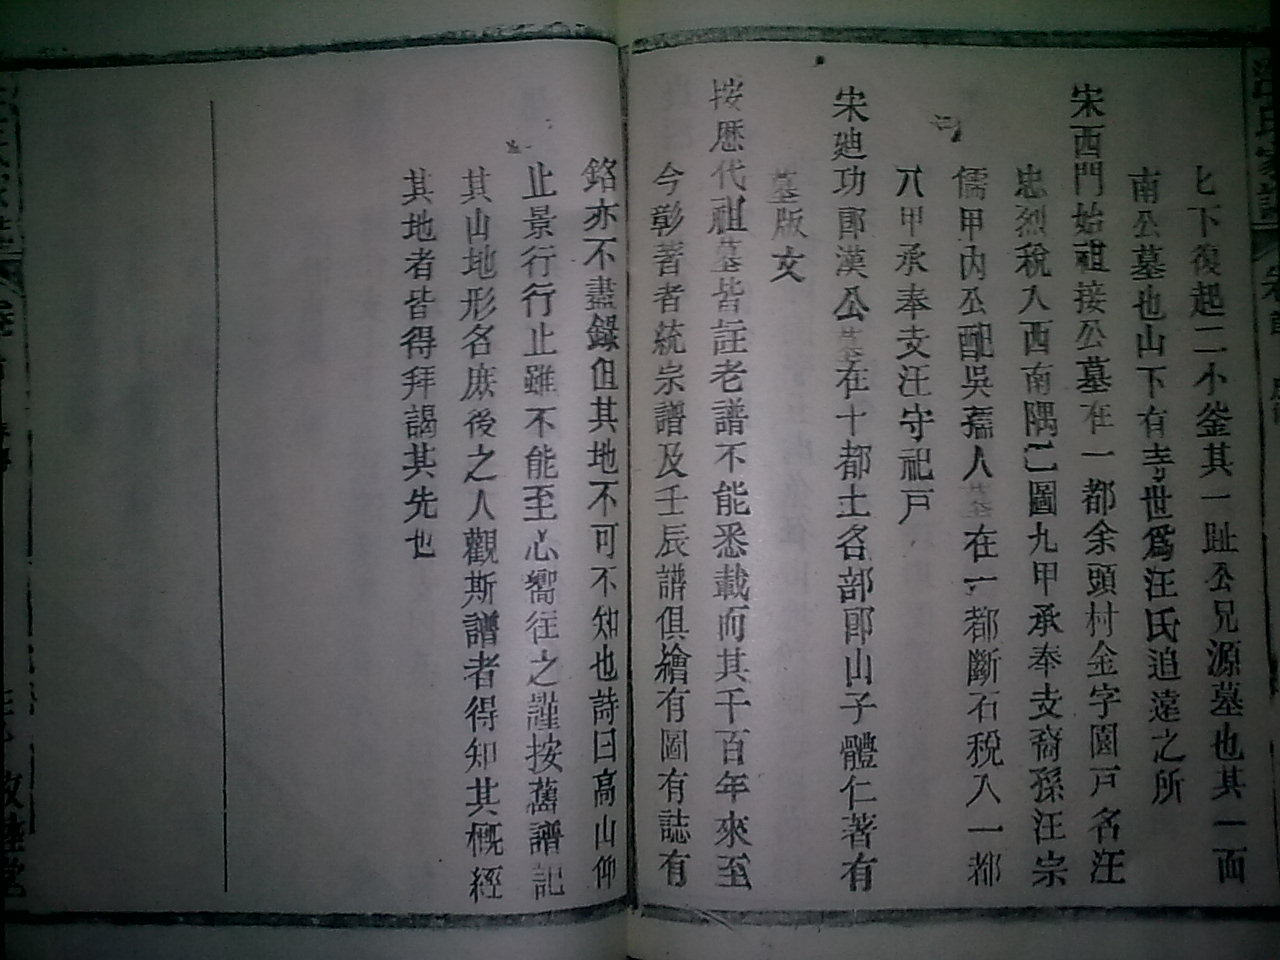 汪氏家譜
上下復起二小釜其一趾公兄源墓也其一面
南公墓也山下有寺世爲汪氏追遠之所
宋西門始祖接公墓在一都余頭村金字園戸名汪
忠烈稅入西南隅乙圖九甲承奉支裔孫汪宗
儒甲內公配吳孺人墓在一都斷石稅入一都
八甲承奉支汪守祀戸
宋廸功郎漢公墓在十都土名部郎山子體仁著有
墓版文
按歷代祖墓皆註老譜不能悉載而其千百年來至
今彰著者統宗譜及壬辰譜俱繪有圖有誌有
銘亦不盡錄但其地不可不知也詩曰高山仰
止景行行止雖不能至心嚮往之謹按舊譜記
其山地形名庶後之人觀斯譜者得知其概經
其地者皆得拜謁其先也